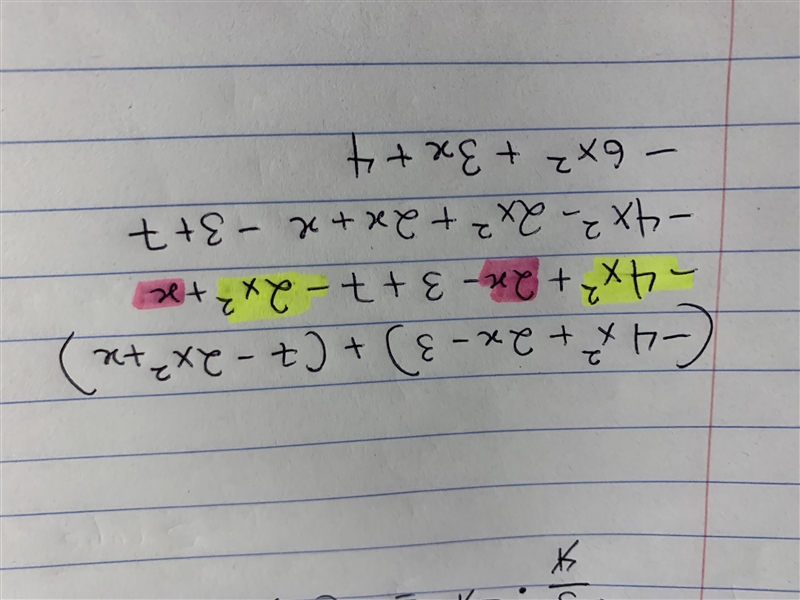 (-4x² + 2x - 3) + (7 - 2x² + x)
-4x² + 2x - 3 + 7 - 2x² + x
-4x² - 2x² + 2x + x - 3 + 7
-6x² + 3x + 4